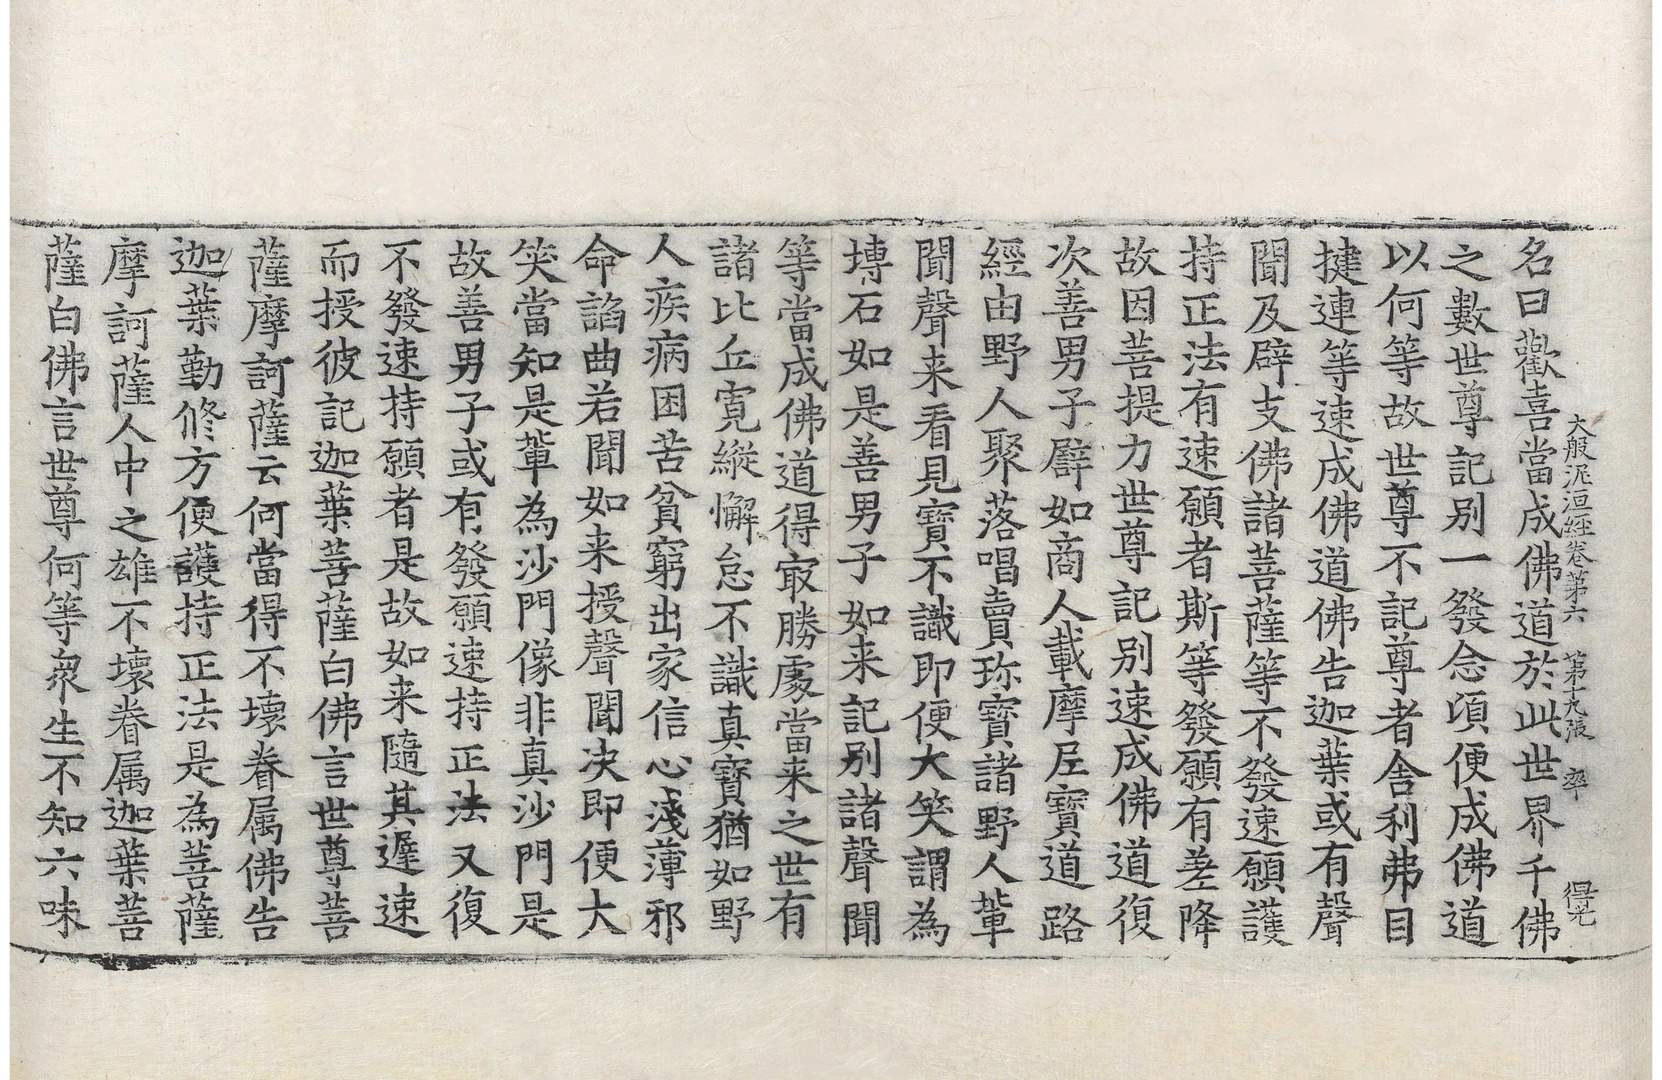 大般泥洹經卷第六　第十九張　率　得光
名曰歡喜當成佛道於此世界千佛
之數世尊記别一發念頃便成佛道
以何等故世尊不記尊者舍利弗目
揵連等速成佛道佛告迦葉或有聲
聞及辟支佛諸菩薩等不發速願護
持正法有速願者斯等發願有差降
故因菩提力世尊記别速成佛道復
次善男子譬如商人載摩尼寶道路
經由野人聚落唱賣珎寶諸野人輩
聞聲来看見寶不識即便大笑謂為
塼石如是善男子如来記别諸聲聞
等當成佛道得㝡勝處當来之世有
諸比丘寬縱懈怠不識真寶猶如野
人疾病困苦貧窮出家信心淺薄邪
命諂曲若聞如来授聲聞决即便大
笑當知是輩為沙門像非真沙門是
故善男子或有發願速持正法又復
不發速持願者是故如来隨其遲速
而授彼記迦葉菩薩白佛言世尊菩
薩摩訶薩云何當得不壞眷属佛告
迦葉勤修方便護持正法是為菩薩
摩訶薩人中之雄不壞眷属迦葉菩
薩白佛言世尊何等衆生不知六味